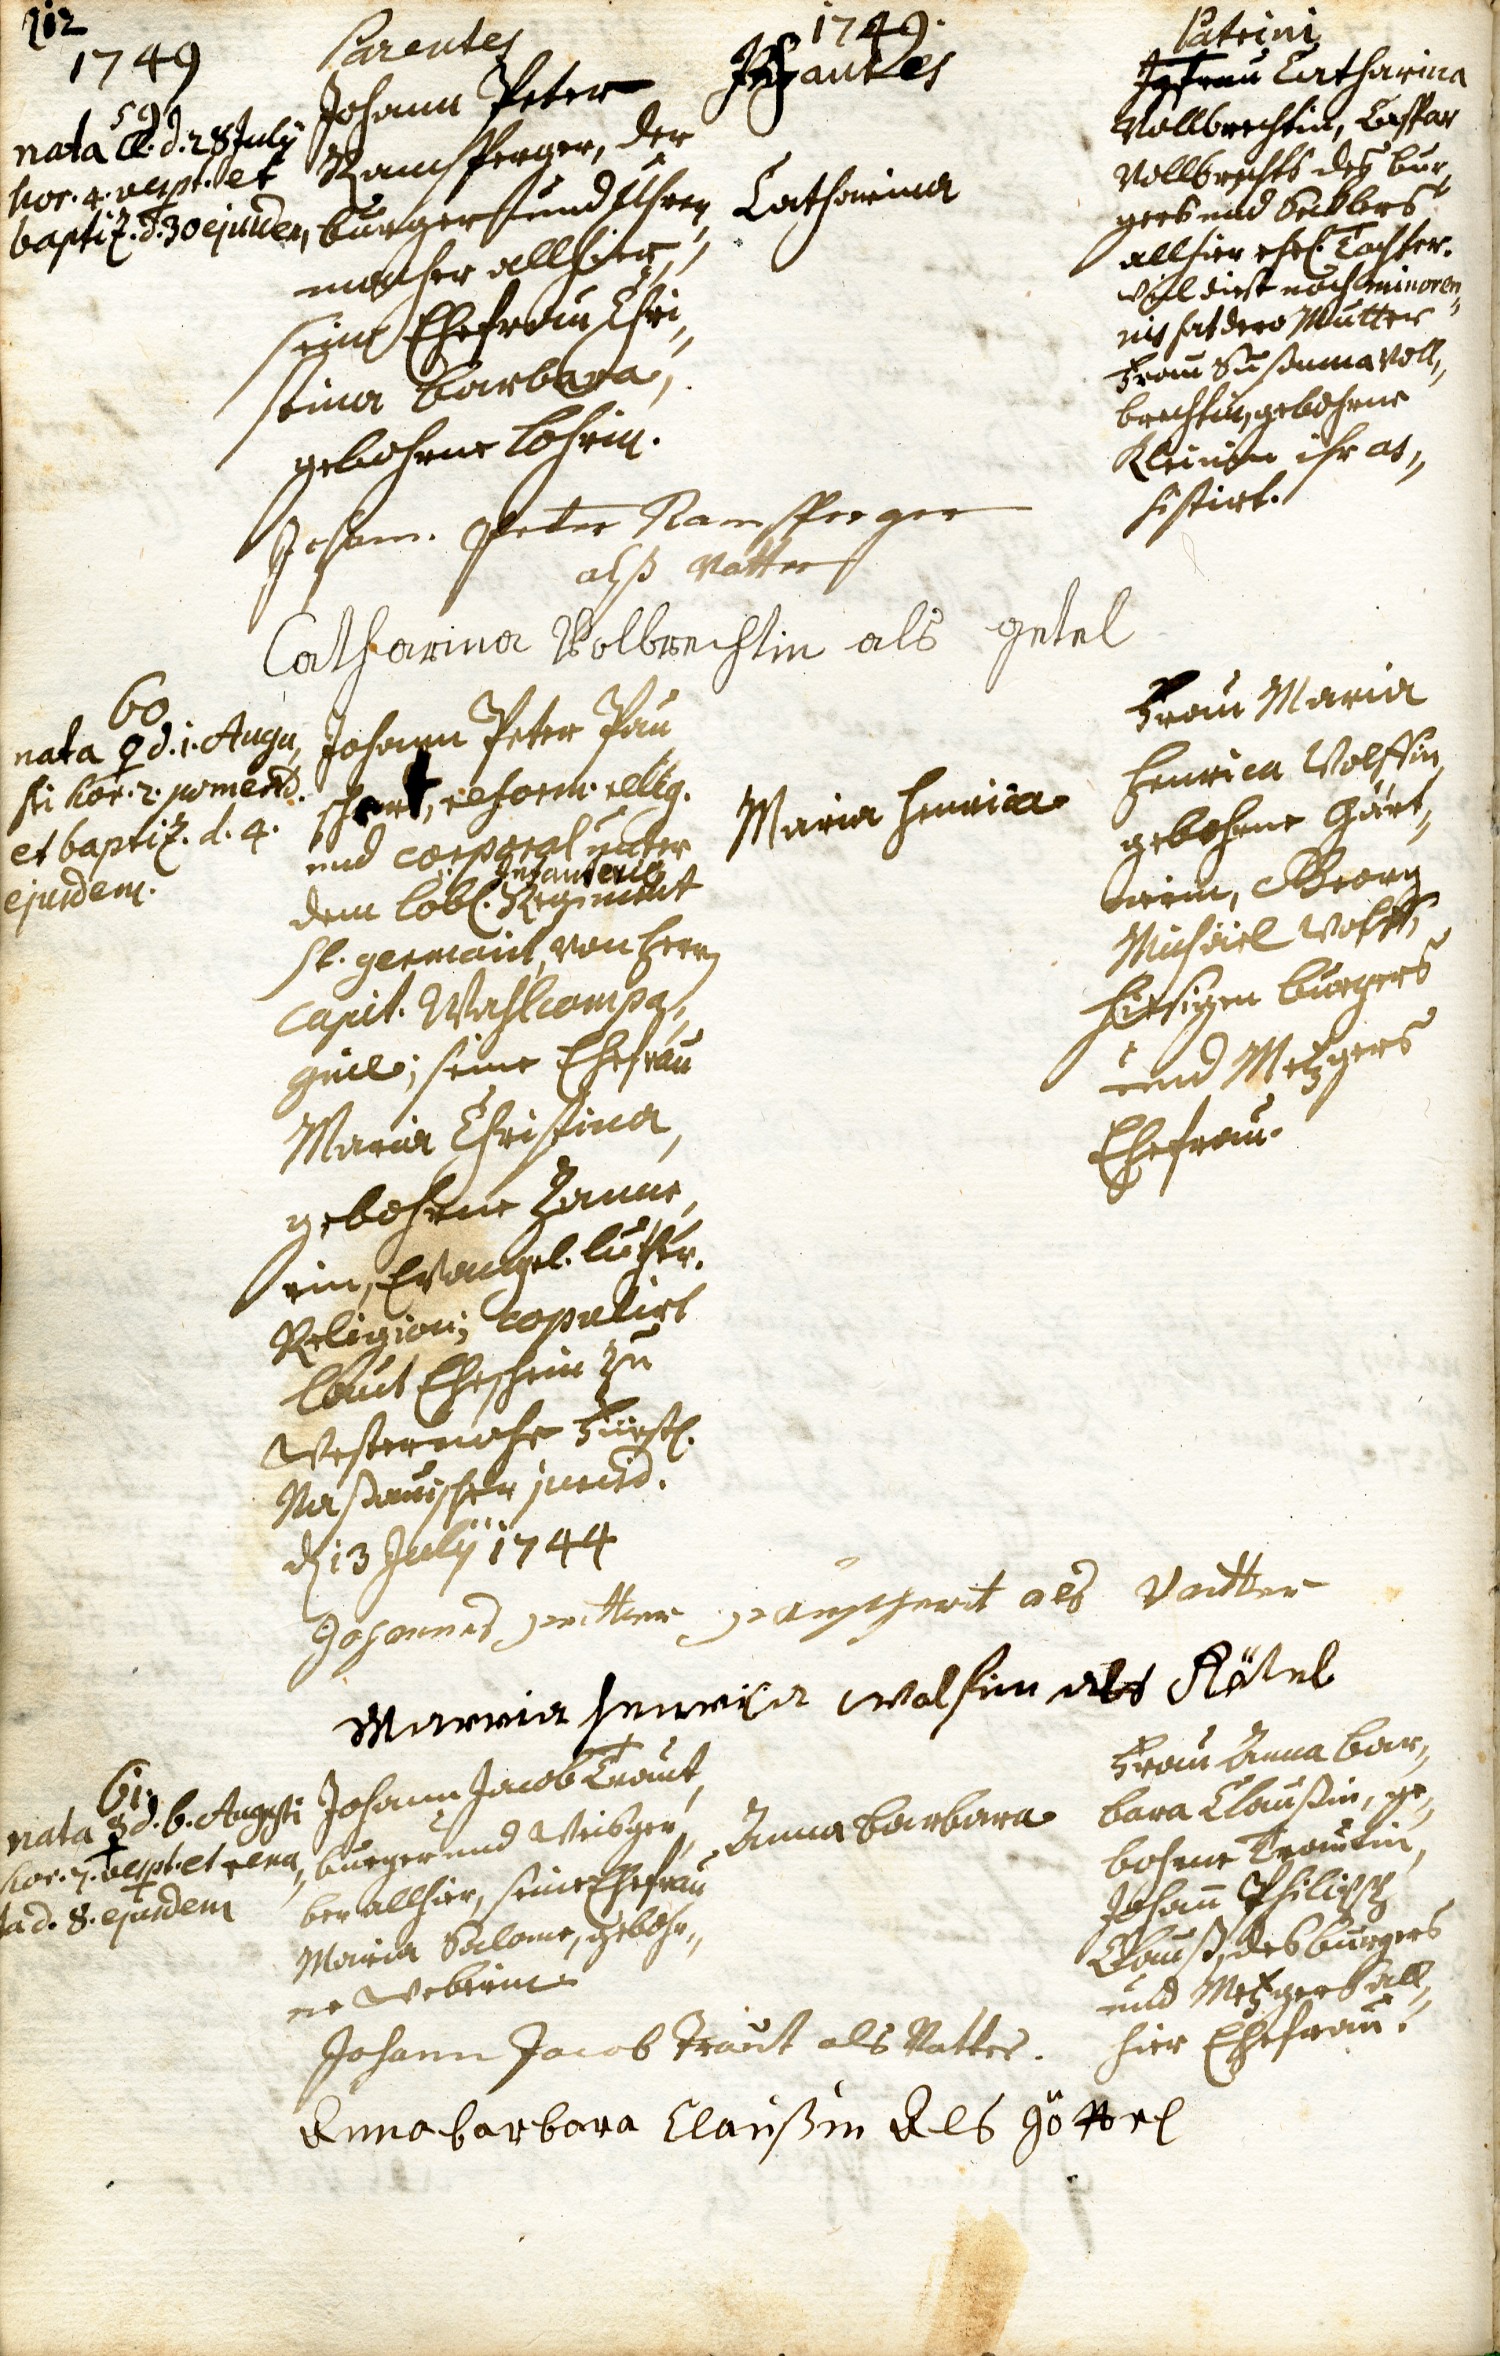 212
1749
Parentes
1749.
Infantes
Patrini
59
nata d. 28 July
hor. 4. vespt. et
baptiz. d. 30 ejusdem,
Johann Peter
Ramsperger, der
burger und Uhren,,
macher allhier,
seine Ehefrau Chri,,
stina Barbara,
gebohrne Lohrin.
Catharina
Jgfrau Catharina
Vollbrechtin, Caspar
Vollbrechts des bur,,
gers und Secklers
allhier ehel. Tochter.
weil diese noch minoren,,
nis hat dero Mutter
Frau Susanna Voll,,
brechtin, gebohrne
Kleinin ihr as,,
sistirt.
Johan. Peter Ramsperger
alß Vatter
Catharina Volbrechtin als getel
60
nata ♀ d. 1. Augu,,
sti hor. 2. pomerid.
et baptiz. d. 4.
ejusdem.
Johann Peter Pau
schert, reform. relig.
und corporal unter
dem löbl. Infanterie Regiment
St. germain, von Herrn
Capit. Wahl compa,,
gnie; seine Ehefrau
Maria Christina,
gebohrne Zanne,,
rin, Evangel. Luther.
Religion; copulirt
laut Ehschein zu
Westernohe Fürstl.
Naßauischer jurisd.
d. 13 July 1744
Maria Henrica
Frau Maria
Henrica Wolffin
gebohrne Gärt,,
nerin, Georg
Michael Wolffs
hiesigen burgers
und Metzgers
Ehefrau.
Johannes petter pauschert als Vatter
Marria henrica wolfin als Götel
61.
nata ☿ d. 6. Augusti
hor. 7. vespt. et rena,,
ta d. 8. ejusdem
Johann Jacob Traut,
burger und Weisger,,
ber allhier, seine Ehefrau
Maria Salome, gebohr,,
ne Weberin
Anna Barbara
Frau Anna Bar,,
bara Claußin, ge,,
bohrne Trautin,
Johann Philipp
Clauß, des burgers
und Metzgers all,,
hier Ehefrau.
Johann Jacob Traut als Vatter.
Anna barbara Claußin Als göttel